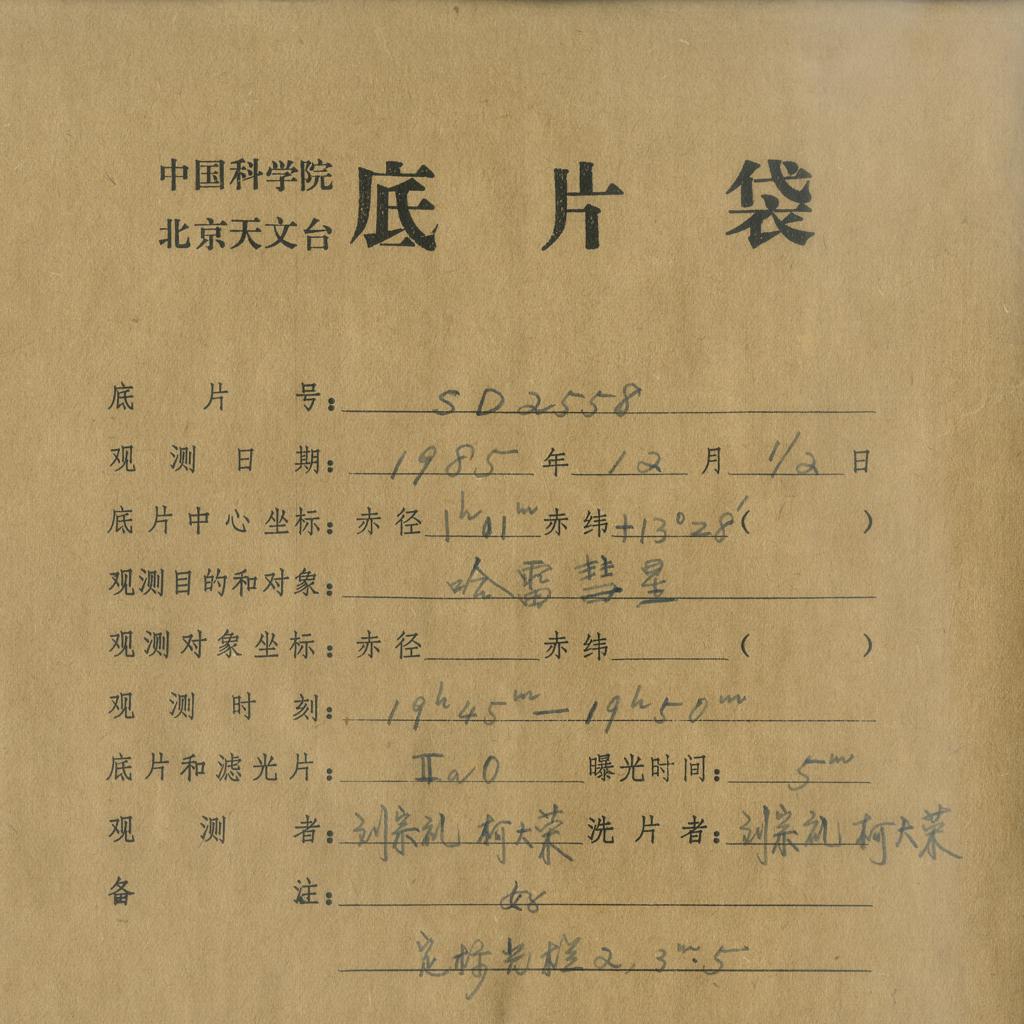 中国科学院
北京天文台 底片袋
底片号：SD2558
观测日期：1985年12月1/2日
底片中心坐标：赤径1ʰ01ᵐ赤纬+13°28′（ ）
观测目的和对象：哈雷彗星
观测对象坐标：赤径 赤纬 （ ）
观测时刻：19ʰ45ᵐ—19ʰ50ᵐ
底片和滤光片：ⅡaO 曝光时间：5ᵐ
观测者：刘宗礼 柯大荣 洗片者：刘宗礼 柯大荣
备注：好
定标光栏2，3ᵐ.5